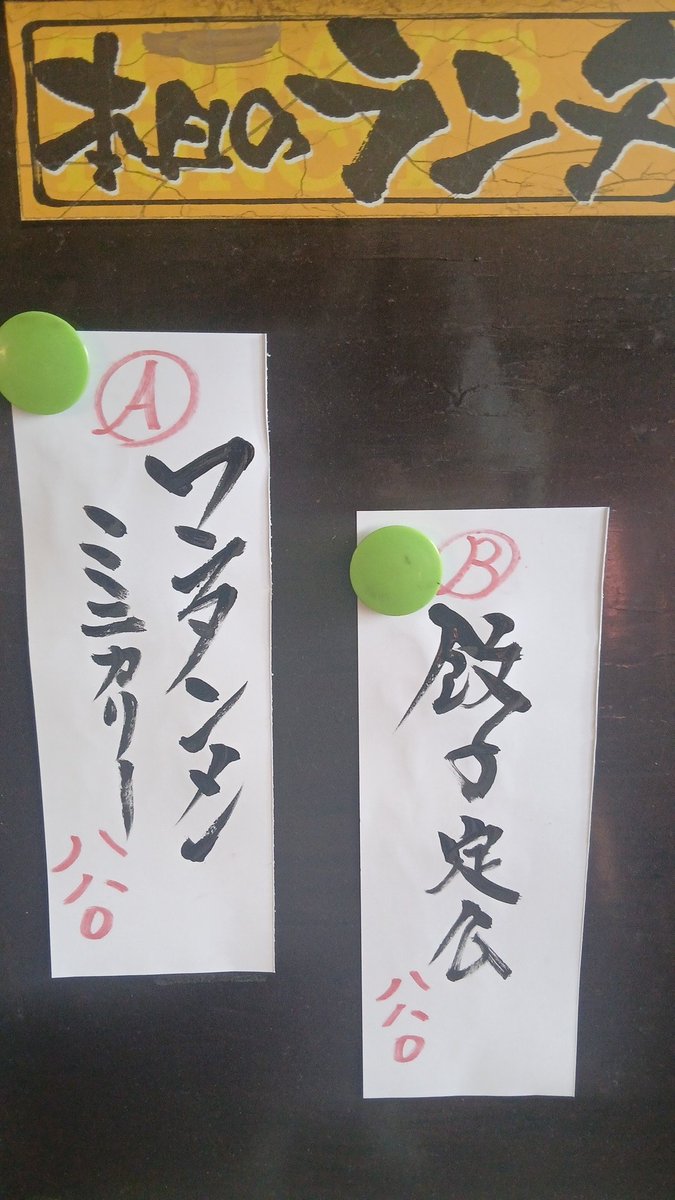 本日のランチ
A
ワンタンメン
ミニカリー
八八〇
B
餃子定食
八八〇